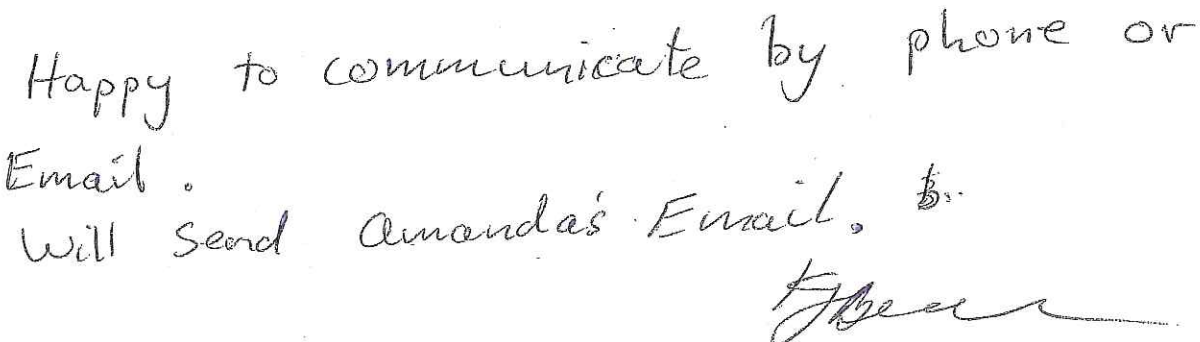 Happy to communicate by phone or
Email.
Will send Amanda's Email.